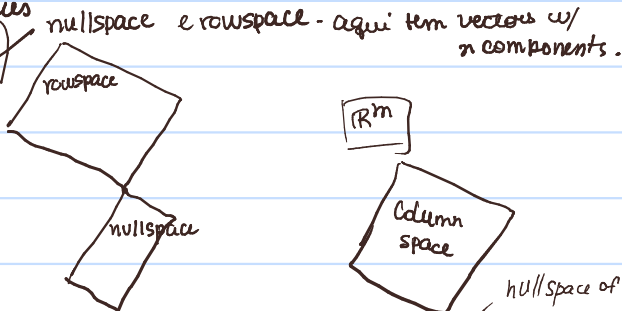 nullspace e rowspace - aqui tem vectors w/
n components.
rowspace
nullspace
ℝᵐ
Column
space
nullspace of